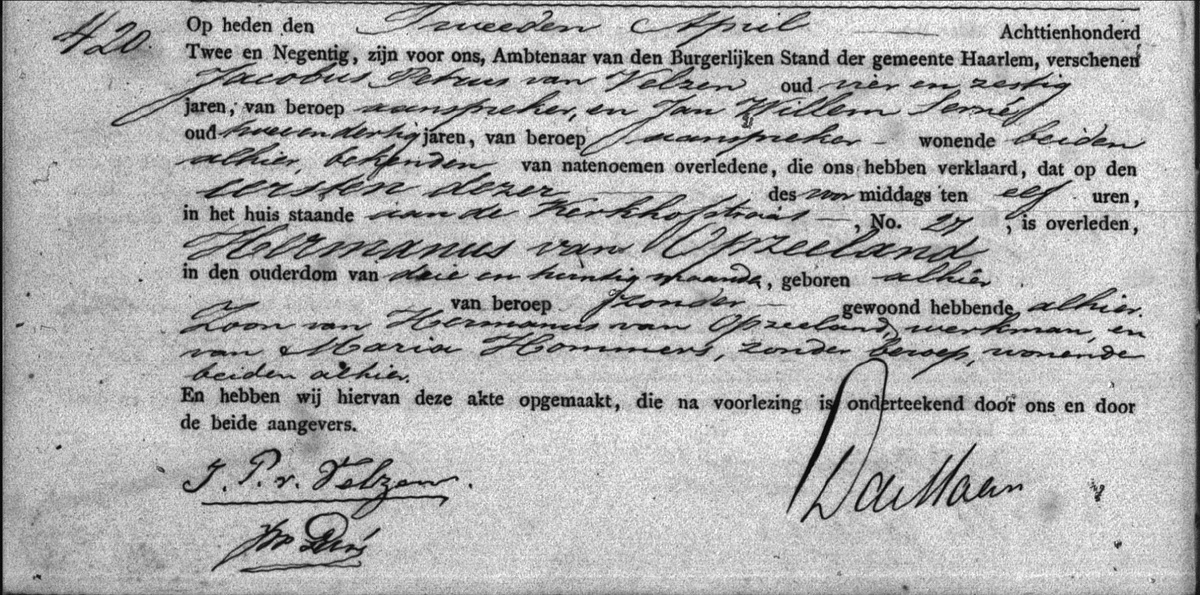 420.
Op heden den Tweeden April Achttienhonderd
Twee en Negentig, zijn voor ons, Ambtenaar van den Burgerlijken Stand der gemeente Haarlem, verschenen
Jacobus Petrus van Velzen oud vier en zestig
jaren, van beroep aanspreker, en Jan Willem
oud twee en dertig jaren, van beroep aanspreker wonende beiden
alhier, bekenden van natenoemen overledene, die ons hebben verklaard, dat op den
eersten dezer des voormiddags ten elf uren,
in het huis staande aan de Kerkhofstraat, No. 27, is overleden,
Hermanus van Opzeeland
in den ouderdom van drie en twintig maanden, geboren alhier
van beroep zonder gewoond hebbende alhier.
Zoon van Hermanus van Opzeeland, werkman, en
van Maria Hommers, zonder beroep, wonende
beiden alhier.
En hebben wij hiervan deze akte opgemaakt, die na voorlezing is onderteekend door ons en door
de beide aangevers.
J. P. v. Velzen.